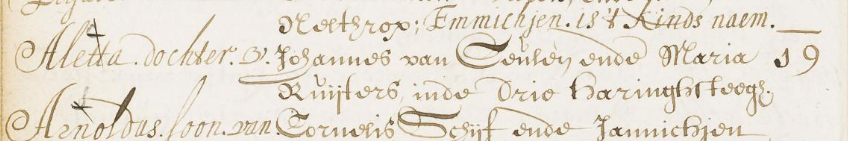 Neethrop; Emmichjen. is 't Kinds naem.
Aletta. dochter. v. Johannes van Ceulen ende Maria 19
Ruijters, inde Drie Haringhsteegh.
Arnoldus. soon. van. Cornelis Schijf ende Jannichjen